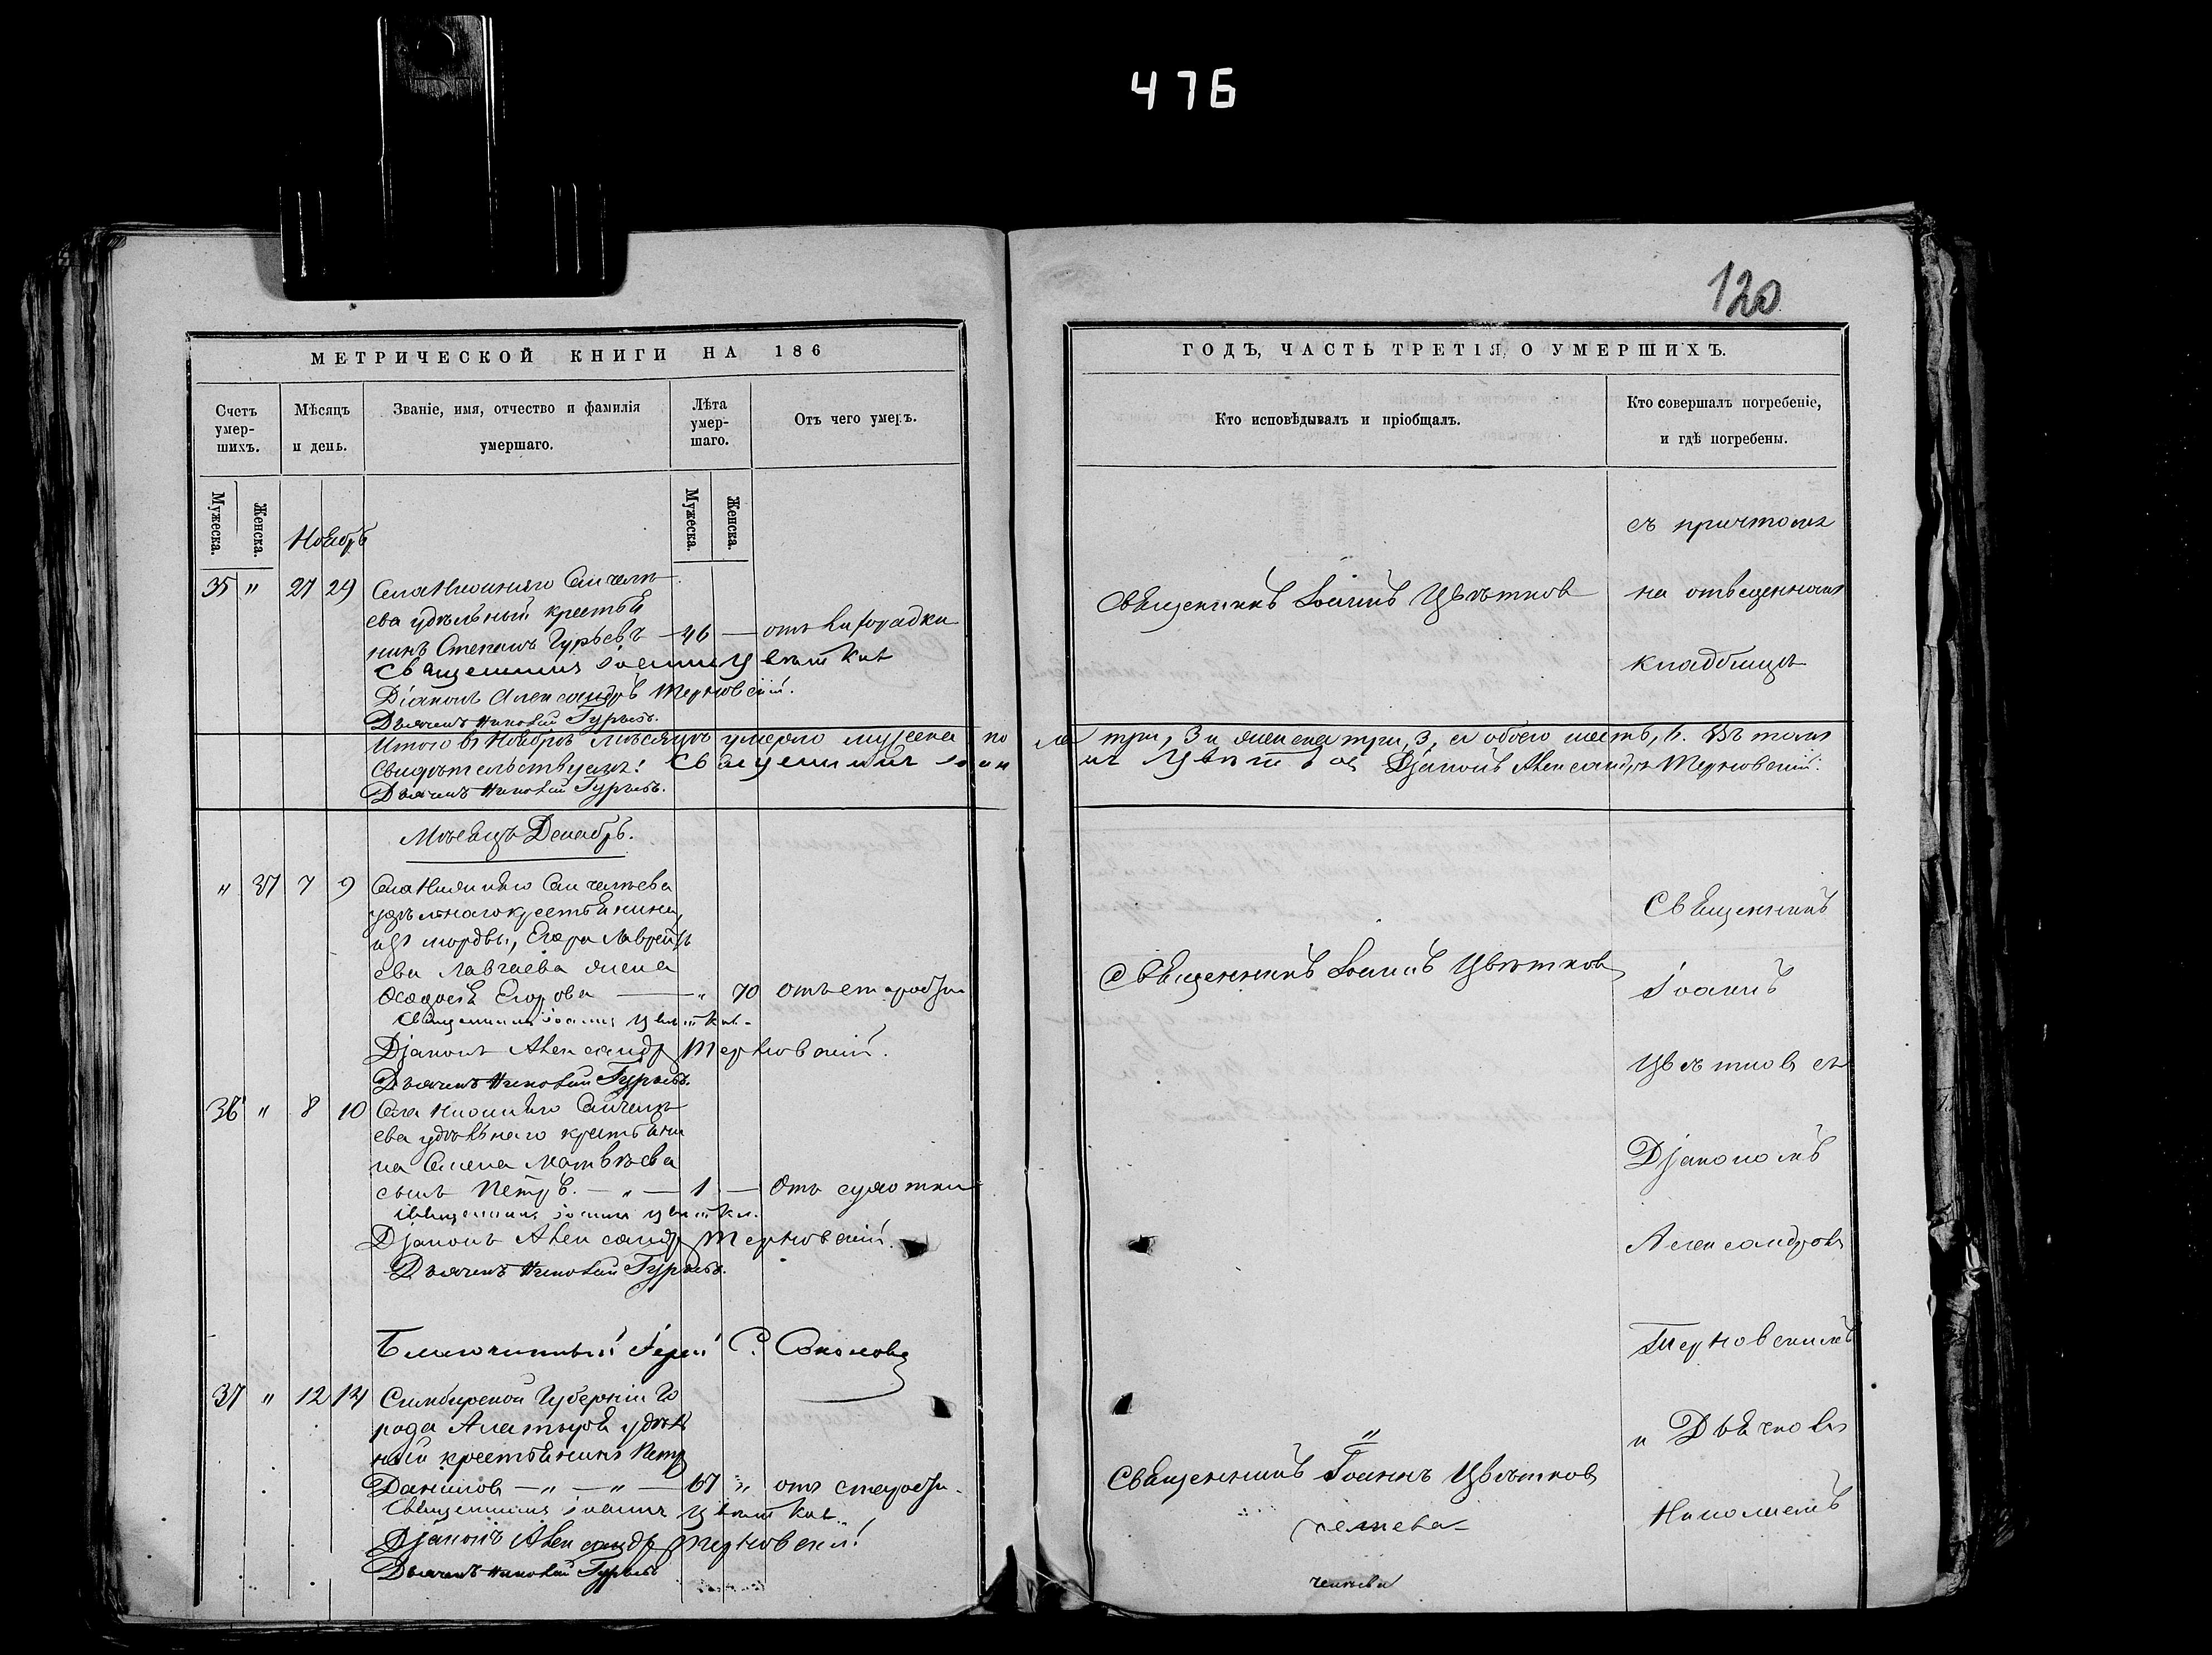 476
120
МЕТРИЧЕСКОЙ КНИГИ НА 186
Счетъ умер-шихъ.
Мѣсяцъ и день.
Званіе, имя, отчество и фамилія умершаго.
Лѣта умер-шаго.
Отъ чего умеръ.
Мужеска.
Женска.
Мужеска.
Женска.
Ноябрь
35 " 27 29 Села Нижняго Санчелѣ
ева удѣльный крестья
нинъ Степанъ Гурьевъ — 46 — отъ лихорадки
Священникъ Іоаннъ Цвѣтков
Діаконъ Александръ Терновскій.
Дьячекъ Николай Гурьевъ.
Итого въ Ноябрѣ мѣсяцѣ умерло мужеска по
Свидѣтельствуемъ: Священникъ Іоан
Дьячекъ Николай Гурьевъ.
Мѣсяцъ Декабрь.
" 37 7 9 Села Нижняго Санчелѣева
удѣльнаго крестьянина,
изъ мордвы, Егора Лаврентъ
ева жена
Егорова — " 70 отъ старости
Священникъ Іоаннъ Цвѣтков
Діаконъ Александръ Терновскій.
Дьячекъ Николай Гурьевъ.
36 " 8 10 Села Нижняго Санчелѣ
ева удѣльнаго крестьяни
на Семена Матвѣева
сынъ Петръ. — " — 1 — Отъ сухотки
Священникъ Іоаннъ Цвѣтков.
Діаконъ Александръ Терновскій.
Дьячекъ Николай Гурьевъ.
Благочинный Іерей С. Соколовъ
37 " 12 14 Симбирской Губерніи Го
рода Алатыря удѣль
ный крестьянинъ Петръ
Даниловъ — " — " — 67 " отъ старости.
Священникъ Іоаннъ Цвѣтков
Діаконъ Александръ Терновскій
Дьячекъ Николай Гурьевъ
ГОДЪ, ЧАСТЬ ТРЕТІЯ, О УМЕРШИХЪ.
Кто исповѣдывалъ и пріобщалъ.
Кто совершалъ погребеніе, и гдѣ погребены.
съ причтомъ
Священникъ Іоаннъ Цвѣтков
на отведенномъ
кладбищѣ
ла три, 3 и женска три, 3, а обоего шесть, 6. Въ томъ
нъ Цвѣтков Діаконъ Александръ Терновскій.
Священникъ
Священникъ Іоаннъ Цвѣтков
Іоаннъ
Цвѣтков съ
Діакономъ
Александромъ
Терновскимъ
и Дьячковъ
Священникъ Іоаннъ Цвѣтков
Николаемъ